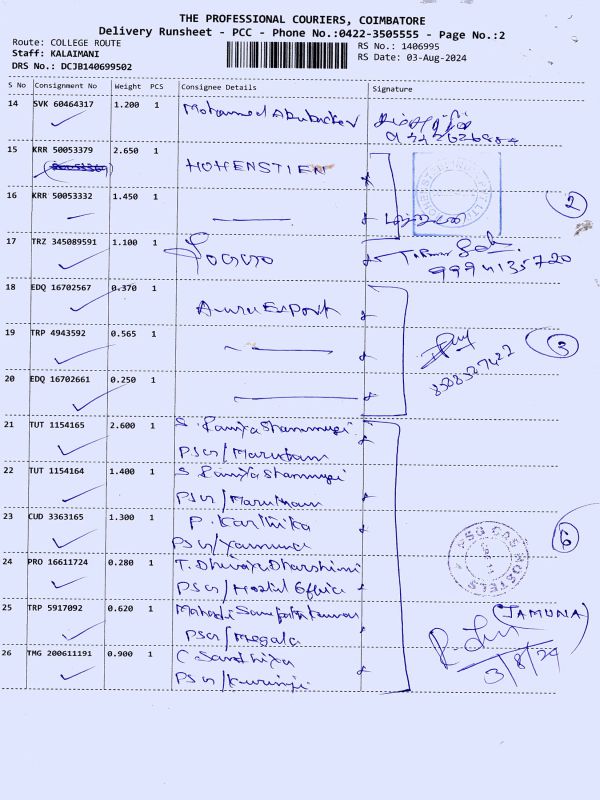 THE PROFESSIONAL COURIERS, COIMBATORE
Delivery Runsheet - PCC - Phone No.:0422-3505555 - Page No.:2
Route: COLLEGE ROUTE
Staff: KALAIMANI
DRS No.: DCJB140699502
RS No.: 1406995
RS Date: 03-Aug-2024
S No Consignment No Weight PCS Consignee Details Signature
14 SVK 60464317 1.200 1 Mohammed Abubacker
15 KRR 50053379 2.650 1 HOHENSTIEN
16 KRR 50053332 1.450 1
2
17 TRZ 345089591 1.100 1
9994135720
18 EDQ 16702567 0.370 1 Auru Export
19 TRP 4943592 0.565 1
3
20 EDQ 16702661 0.250 1
21 TUT 1154165 2.600 1 S. Ramya Shanmugi
PSG/Marutham
22 TUT 1154164 1.400 1 S Ramya Shanmugi
PSG/Marutham
23 CUD 3363165 1.300 1 P. Karthika
PSG/Yamuna
6
24 PRO 16611724 0.280 1 T. Dhivaja Dharshini
PSG/Hostel Office
25 TRP 5917092 0.620 1
PSG/Megala
(JAMUNA)
26 TMG 200611191 0.900 1 C Sandhiya
PSG/Kurinji
3/8/24